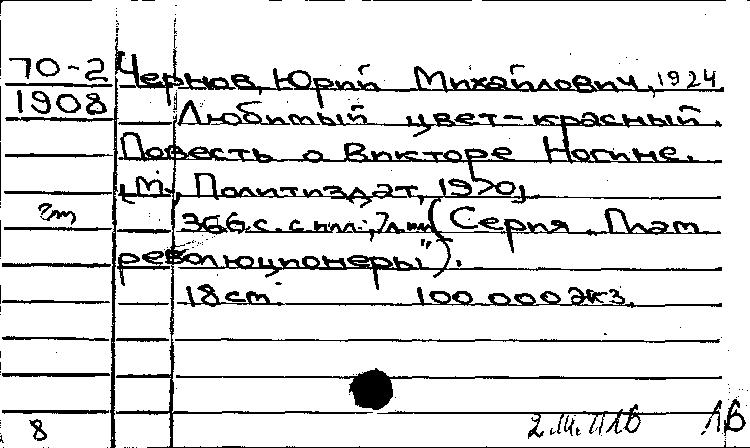 70-2 Чернов, Юрий Михайлович, 1924
1908 Любимый цвет-красный.
Повесть о Викторе Ногине.
[М., Политиздат, 1970]
366 с. с илл.; (Серия „Плам
революционеры").
18 cm. 100 000 экз.
8 ЛВ